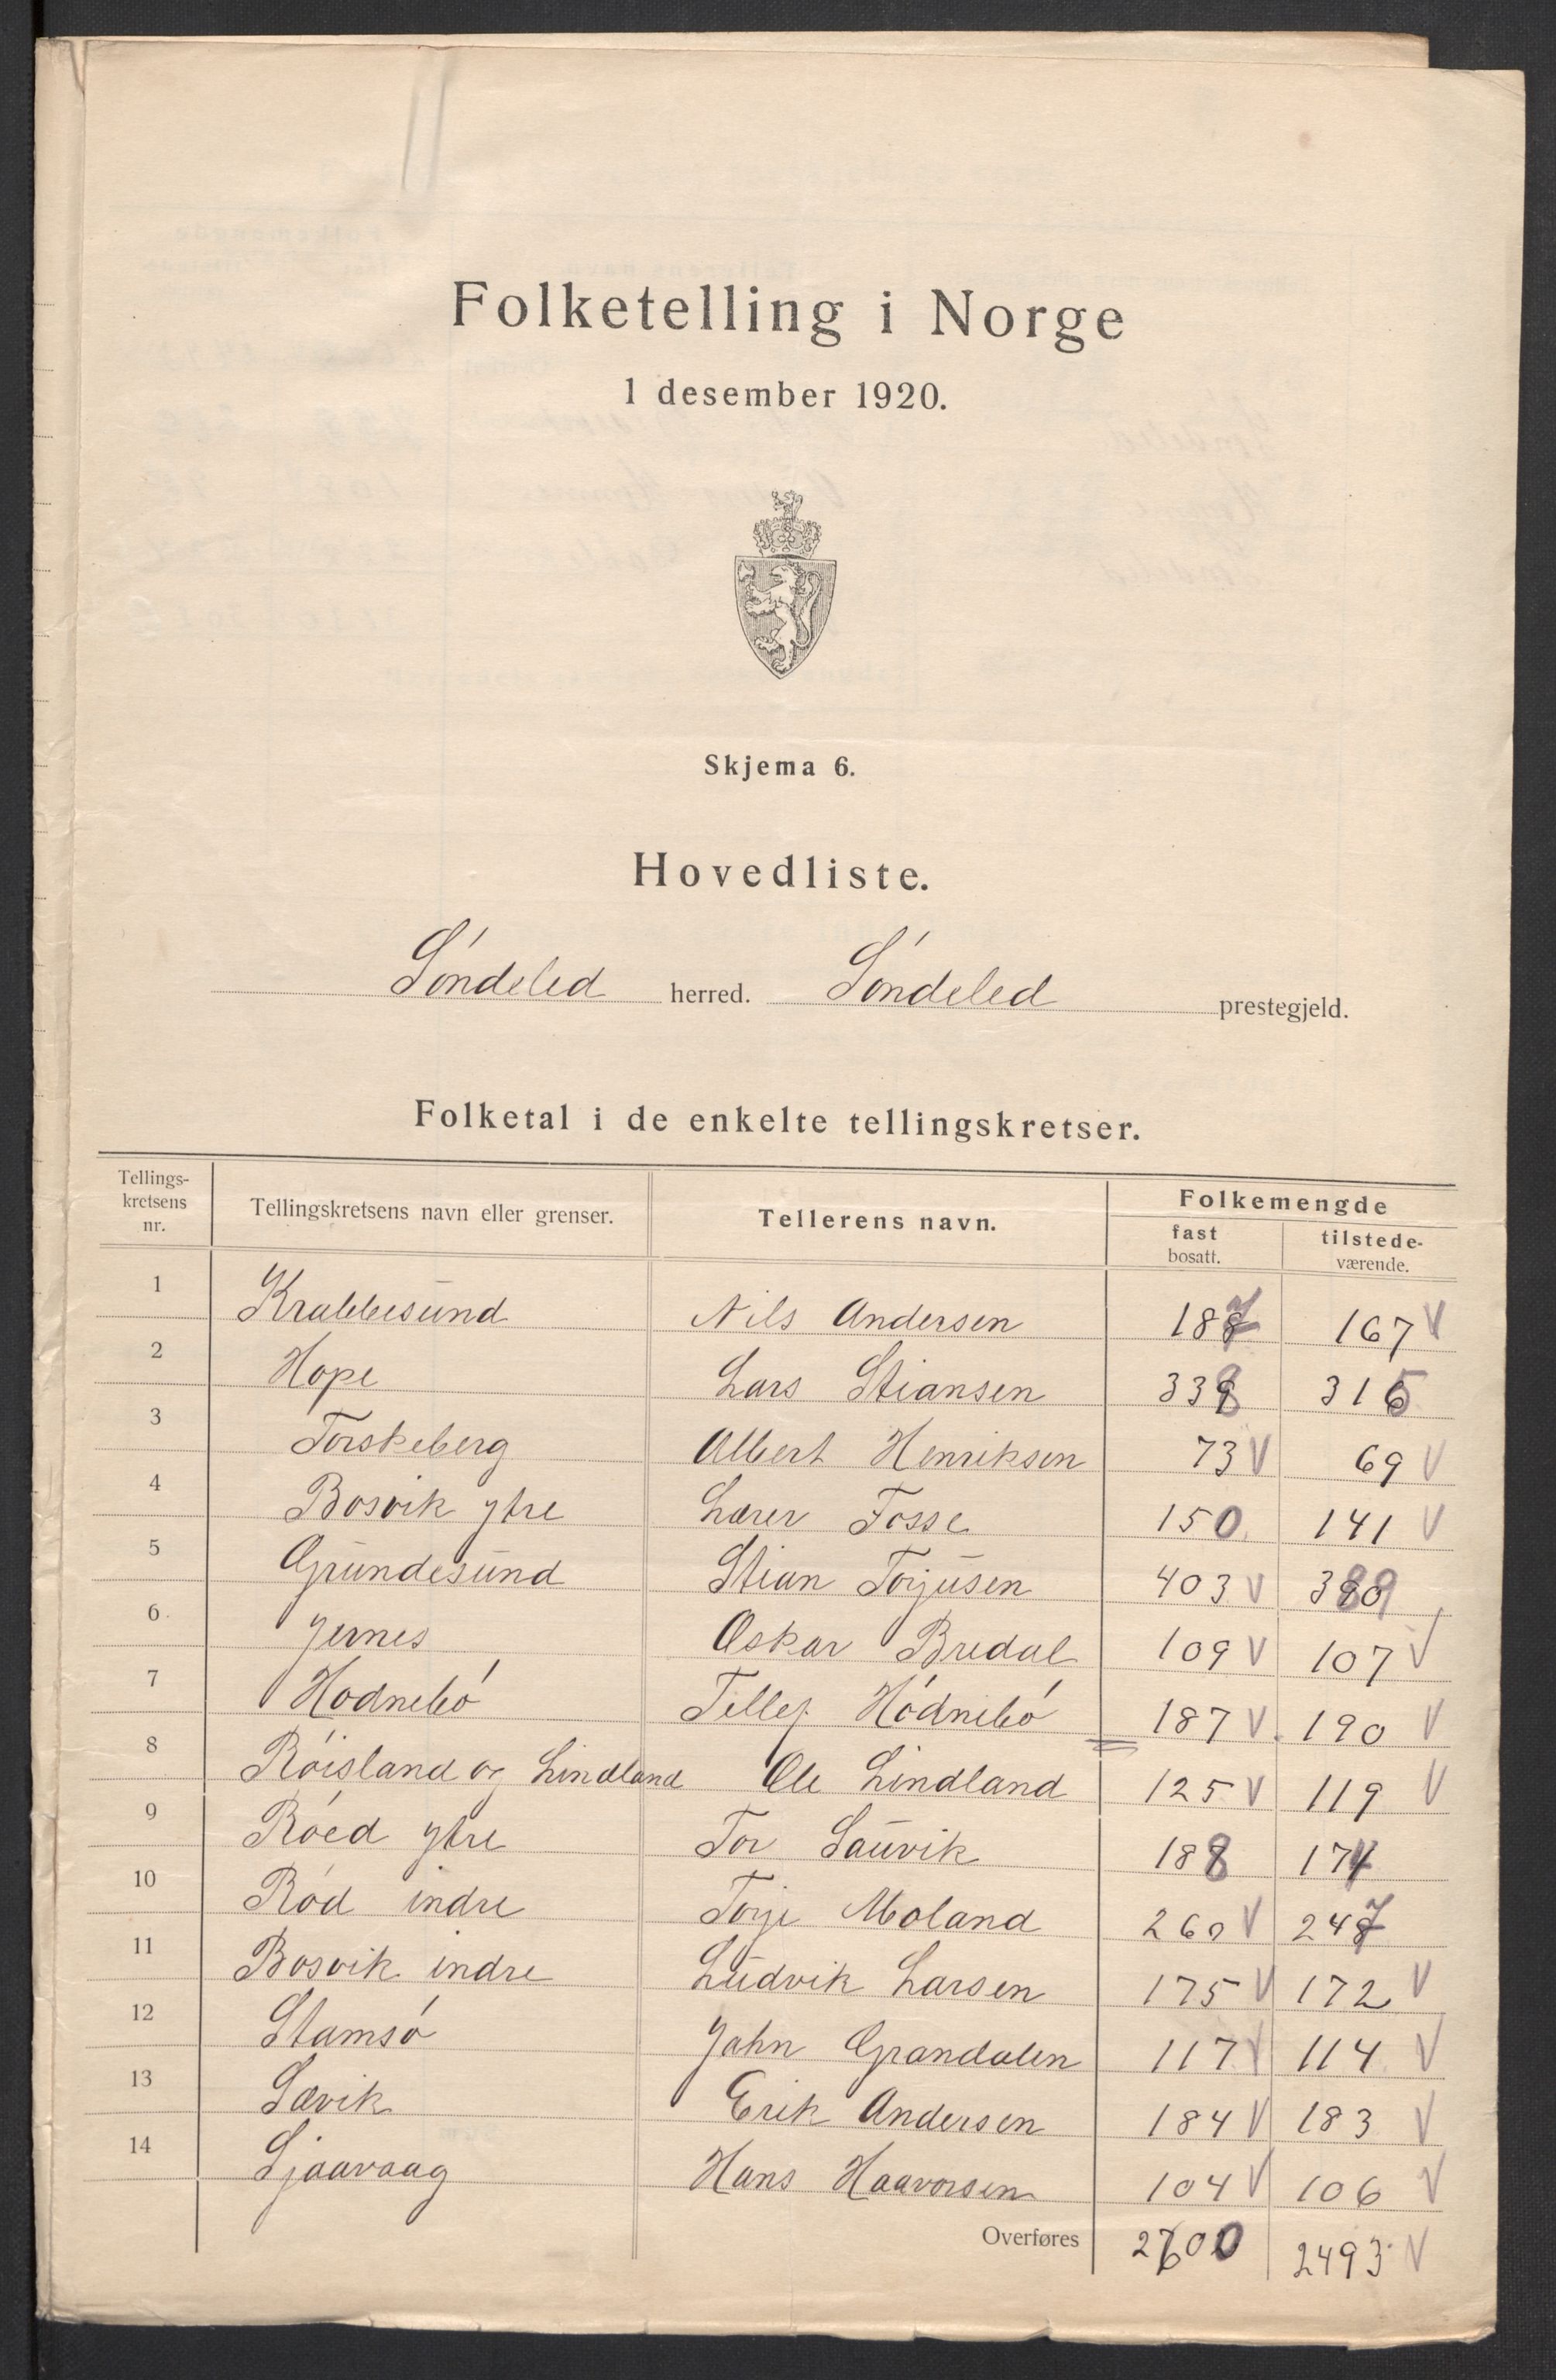 Folketelling i Norge
1 desember 1920.
Skjema 6.
Hovedliste.
Söndeled herred. Söndeled prestegjeld.
Folketal i de enkelte tellingskretser.
Tellings-kretsens nr. Tellingskretsens navn eller grenser. Tellerens navn. Folkemengde
fast bosatt. tilstede-værende.
1 Krabbesund Nils Andersen 187 167 V
2 Hope Lars Stiansen 338 315
3 Torskeberg Albert Henriksen 73 V 69 V
4 Bosvik ytre Lærer Fosse 150 141 V
5 Grundesund Stian Torjusen 403 V 389
6 Jernes Oskar Bredal 109 V 107 V
7 Hödnebö Tellef Hödnebö 187 V 190 V
8 Röisland og Lindland Ole Lindland 125 V 119 V
9 Röed ytre Tor Sauvik 188 174
10 Röd indre Torje Moland 260 V 247
11 Bosvik indre Ludvik Larsen 175 V 172 V
12 Stamsö John Grandalen 117 V 114 V
13 Sævik Erik Andersen 184 V 183 V
14 Sjaavaag Hans Haavorsen 104 V 106 V
Overføres 2600 2493 V